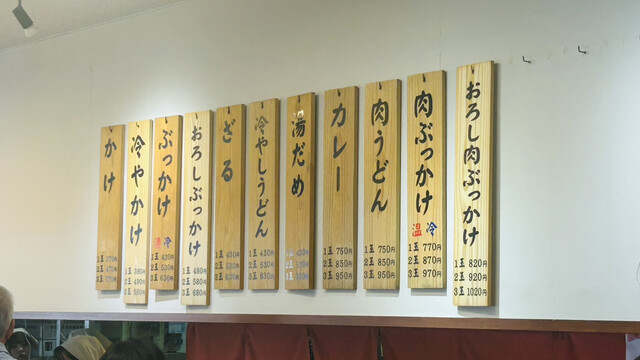 おろし肉ぶっかけ
1玉 820円
2玉 920円
3玉 1020円
肉ぶっかけ
温 冷
1玉 770円
2玉 870円
3玉 970円
肉うどん
1玉 750円
2玉 850円
3玉 950円
カレー
1玉 750円
2玉 850円
3玉 950円
湯だめ
冷やしうどん
1玉 430円
2玉 530円
3玉 630円
ざる
1玉 430円
2玉 530円
3玉 630円
おろしぶっかけ
1玉 480円
2玉 580円
3玉 680円
ぶっかけ
温 冷
1玉 430円
2玉 530円
3玉 630円
冷やかけ
1玉 380円
2玉 480円
3玉 580円
かけ